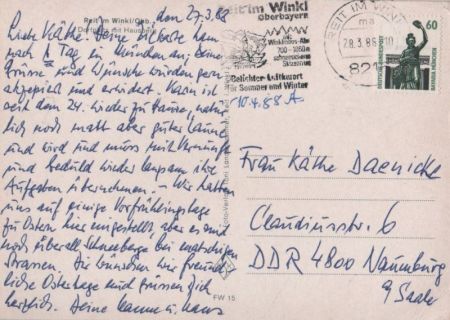 Reit im Winkl/Obb.
den 27.3.88
Liebe Käthe! Deine Postkarte kam
nach 1 Tag in München an, Deine
Grüsse und Wünsche wurden gern
akzeptiert und erwidert. Karin ist
seit dem 24. wieder zu Hause, natür-
lich noch matt aber guter Laune
und wird und muss mit Vernunft
und Geduld wieder langsam ihre
Aufgaben übernehmen. – Wir hatten
uns auf einige Vorfrühlingstage
zu Ostern hier eingestellt aber es sind
noch überall Schneeberge bei matschigen
Strassen. Dir wünschen wir freund-
liche Ostertage und grüssen Dich
herzlich. Deine Hanna u. Hans
FW 15
Reit im Winkl
Oberbayern
700-1850m
Schneesichere
Skizentrum
Beliebter Luftkurort
für Sommer und Winter
REIT IM WINKL
28.3.88-10
821
60
DEUTSCHE BUNDESPOST
BAVARIA MÜNCHEN
10.4.88 A.
Frau Käthe Daenicke
Claudiusstr. 6
DDR 4800 Naumburg
a/Saale